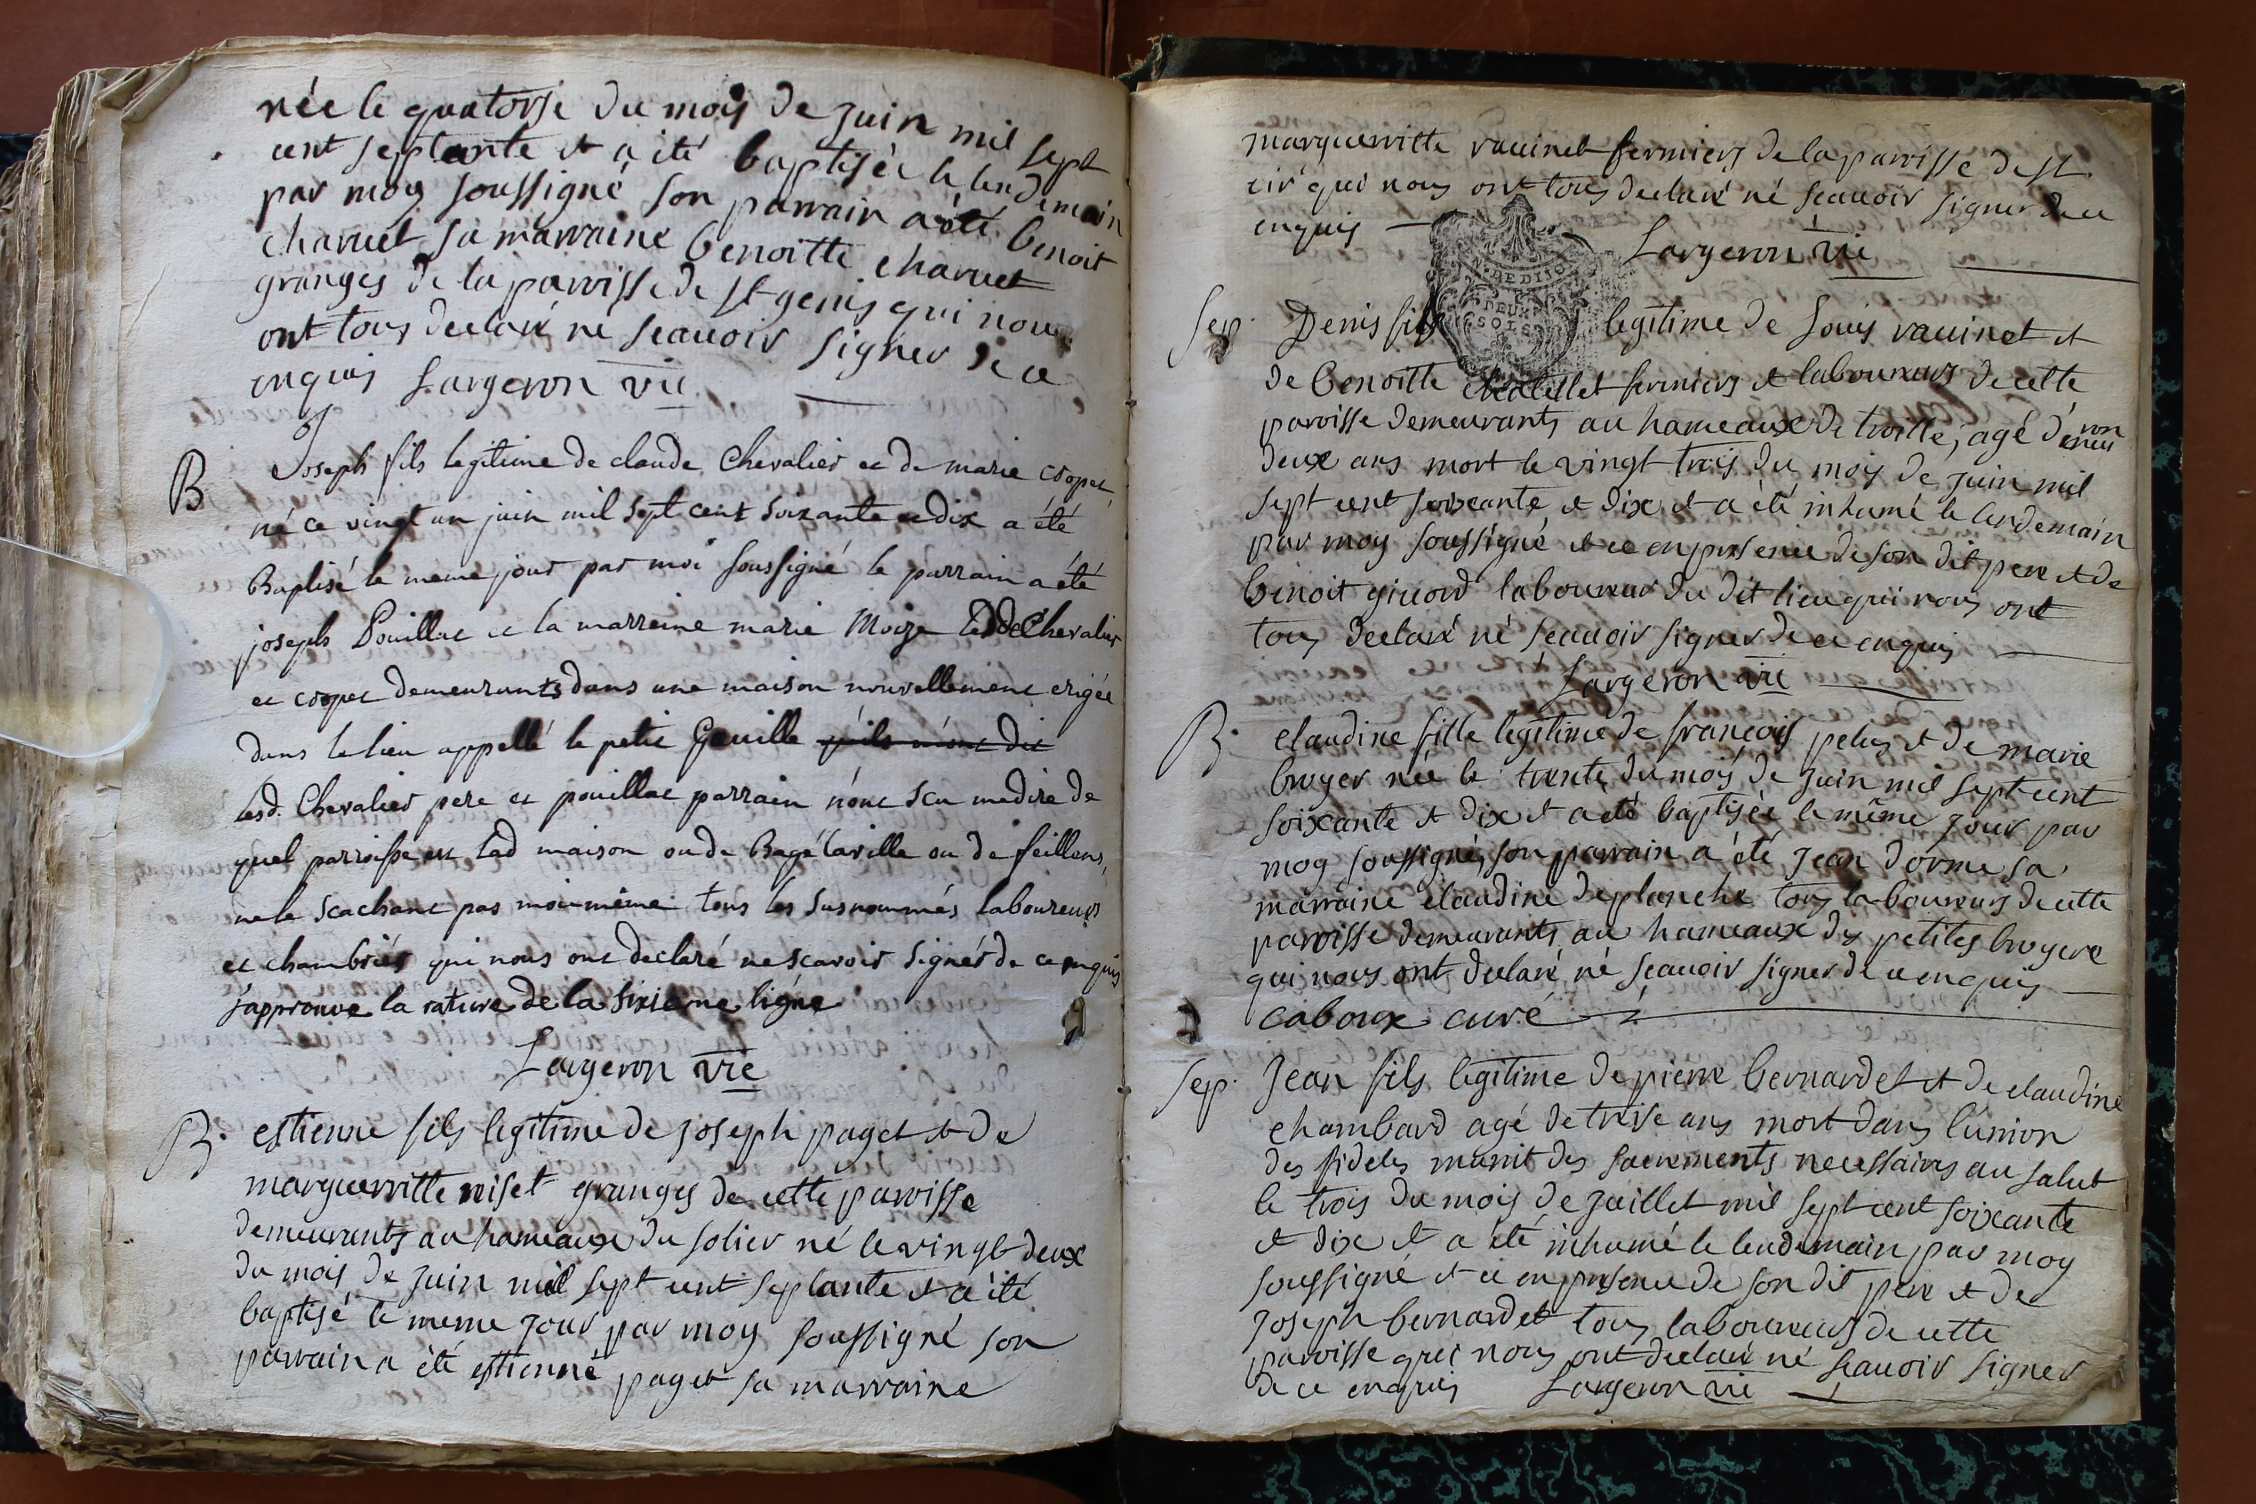 née le quatorse du mois de juin mil sept
cent septante et a été baptisée le lendemain
par moy soussigné son parrain a été benoit
charvet sa marraine benoitte charvet
granges de la paroisse de st genis qui nous
ont tous declaré né scauoir signer de ce
enquis Largeron vic
B Joseph fils legitime de claude Chevalier et de marie coopet
né ce vingt un juin mil sept cent soixante et dix a été
Baptisé le meme jour par moi soussigné le parrain a été
joseph Pouillat et la marreine marie Moge lesd Chevalier
et coopet demeurants dans une maison nouvellement erigée
dans le lieu appellé le petit Genille qu'ils m'ont dit
lesd. Chevalier pere et pouillat parrain n'ont scu me dire de
quel parroisse est lad maison ou de Bagé laville ou de feillens,
ne le scachant pas moi même tous les susnommés laboureurs
et chambriés qui nous ont declaré ne scavoir signér de ce enquis
j'approuve la rature de la sixieme ligne
Largeron vic
B. estienne fils legitime de joseph paget et de
marguerritte niset granges de cette paroisse
demeurants au hameaux du solier né le vingt deux
du mois de juin mil sept cent septante et a été
baptisé le meme jour par moy soussigné son
parrain a été estienne paget sa marraine
marguerritte rauinet fermiers de la paroisse de st
cir qui nous ont tous declaré né scauoir signer de ce
enquis
Largeron vic
N. DE DIJO
DEUX
SOLS
Sep. Denis fils legitime de Louis rauinet et
de benoitte chatellet fermiers et laboureurs de cette
paroisse demeurants au hameaux de , agé d'environ
deux ans mort le vingt trois du mois de juin mil
sept cent soixante et dix et a été inhumé le lendemain
par moy soussigné et ce en presence de son dit pere et de
benoit giuord laboureur du dit lieu qui nous ont
tous declaré né scauoir signer de ce enquis
Largeron vic
B. claudine fille legitime de françois petus et de marie
broyer née le trente du mois de juin mil sept cent
soixante et dix et a été baptisée le même jour par
moy soussigné, son parrain a été jean dorme sa
marraine claudine deplanche tous laboureurs de cette
paroisse demeurants au hameaux des petites broyere
qui nous ont declaré né scauoir signer de ce enquis
caboux curé
Sep. Jean fils legitime de pierre bernardet et de claudine
chambard agé de treise ans mort dans l'union
des fideles munit des sacrements necessaires au salut
le trois du mois de juillet mil sept cent soixante
et dix et a été inhumé le lendemain par moy
soussigné et ce en presence de son dit pere et de
joseph bernardet tous laboureurs de cette
paroisse qui nous ont declaré né scauoir signer
de ce enquis Largeron vic